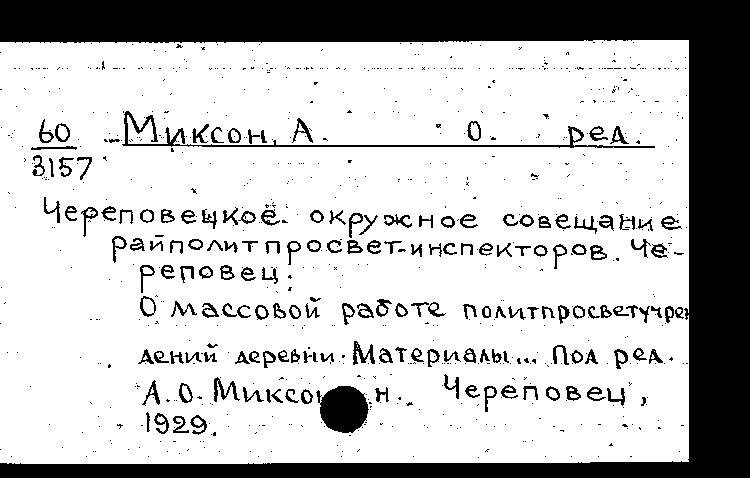 60 Миксон, А. О. ред.
3157
Череповецкое окружное совещание
райполитпросвет-инспекторов. Че-
реповец.
О массовой работе политпросветучреж
дений деревни. Материалы... Под ред.
А.О. Миксон. Череповец,
1929.